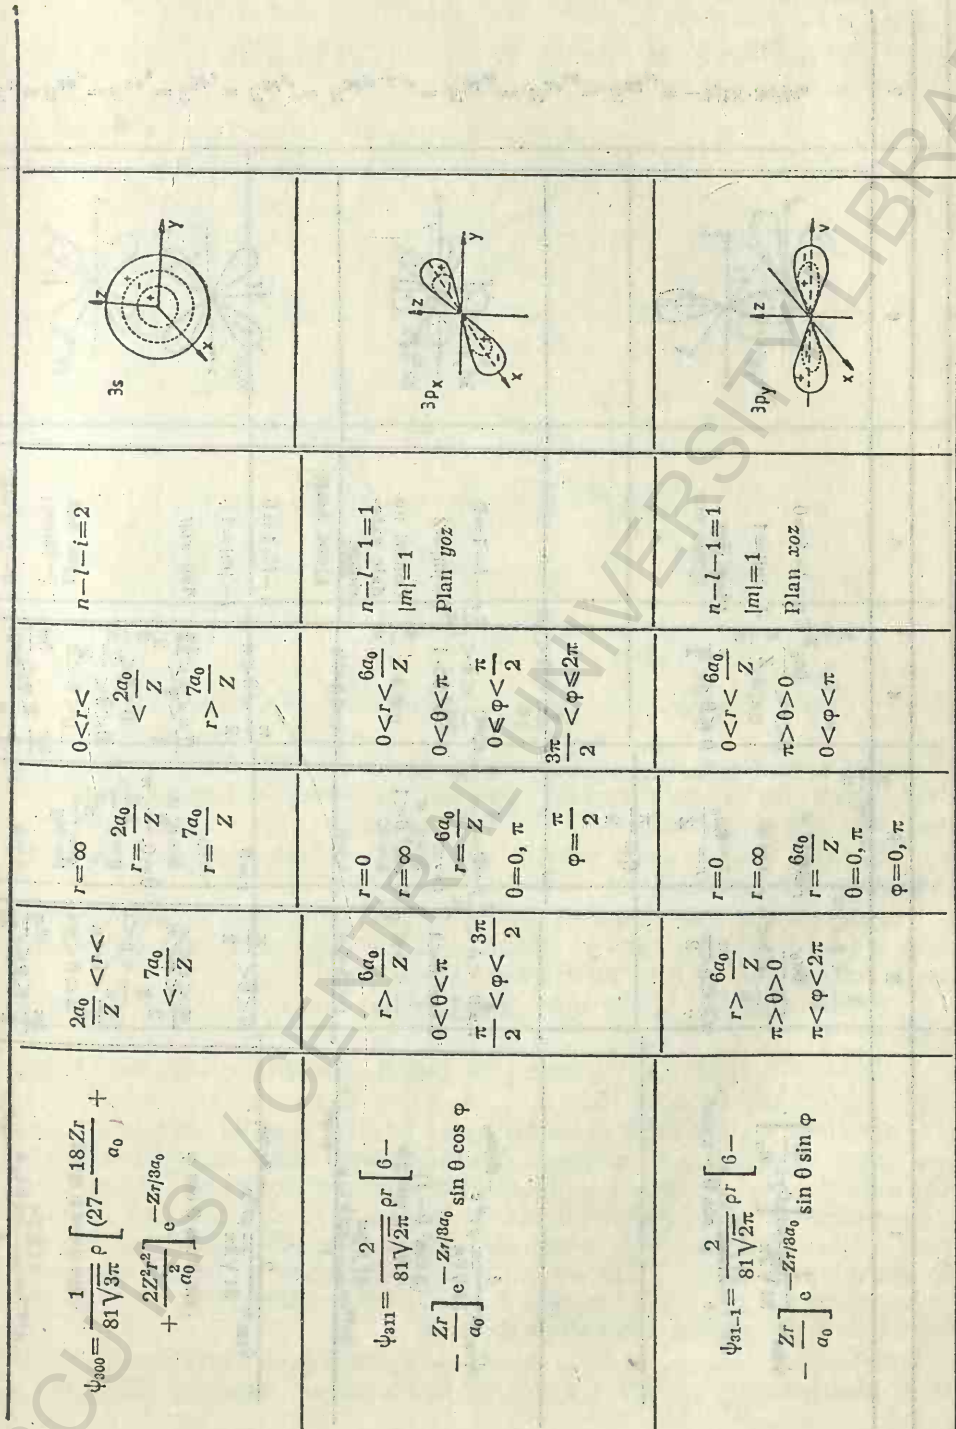 ψ₃₀₀ = 1/(81√3π) ρ [(27 − 18 Zr/a₀ +
+ 2Z²r²/a₀²] e^(−Zr/3a₀)
2a₀/Z < r <
< 7a₀/Z
r = ∞
r = 2a₀/Z
r = 7a₀/Z
0 < r <
< 2a₀/Z
r > 7a₀/Z
n — l — i = 2
3s
z
+
−
+
y
x
ψ₃₁₁ = 2/(81√2π) ρr [6 —
— Zr/a₀] e^(−Zr/3a₀) sin θ cos φ
r > 6a₀/Z
0 < θ < π
π/2 < φ < 3π/2
r = 0
r = ∞
r = 6a₀/Z
θ = 0, π
φ = π/2
0 < r < 6a₀/Z
0 < θ < π
0 ⩽ φ < π/2
3π/2 < φ ⩽ 2π
n — l — 1 = 1
|m| = 1
Plan yoz
3pₓ
z
y
x
ψ₃₁₋₁ = 2/(81√2π) ρr [6 —
— Zr/a₀] e^(−Zr/3a₀) sin θ sin φ
r > 6a₀/Z
π > θ > 0
π < φ < 2π
r = 0
r = ∞
r = 6a₀/Z
θ = 0, π
φ = 0, π
0 < r < 6a₀/Z
π > θ > 0
0 < φ < π
n — l — 1 = 1
|m| = 1
Plan xoz
3py
z
x
BCU IASI / CENTRAL UNIVERSITY LIBRA